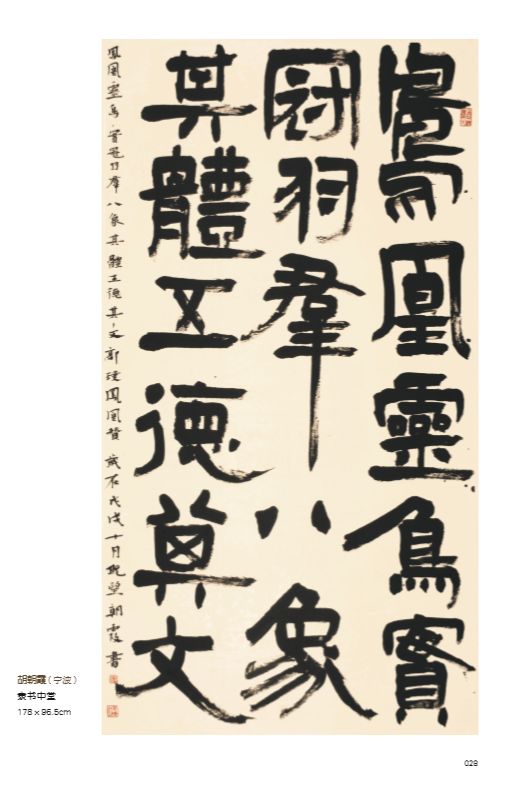 鳳凰靈鳥實
冠羽羣八象
其體五德其文
鳳凰靈鳥實冠羽羣八象其體五德其文郭璞鳳凰贊歲在戊戌十月既望朝霞書
胡朝霞（宁波）
隶书中堂
178×96.5cm
028